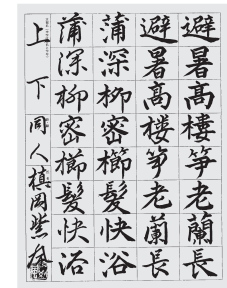 避暑髙樓笋老蘭長
避暑髙楼笋老蘭長
蒲深柳密櫛髮快浴
蒲深柳密櫛髮快浴
上下 同人 槙岡紫